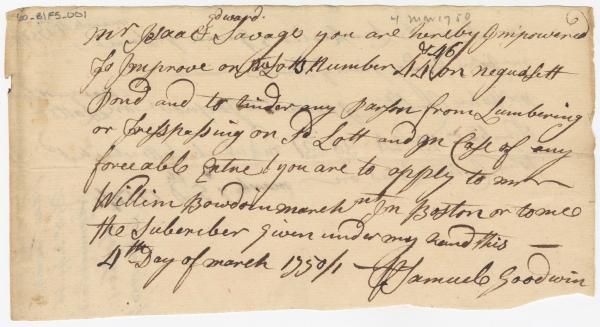 60-81F5-001
4 Mar 1750
Edward.
Mr Isaac Savage you are hereby Impowered
& 46
To Improve on Lots Number 44 on neguasett
Pond and to hinder any Parson from Lumbering
or Tresspassing on sd Lott and in Case of any
foreeable Entre you are to apply to mr
Willim Bowdoin march nt In Boston or to me
the Subscriber Given under my hand this —
4th Day of march 1750/1 — Samuel Goodwin